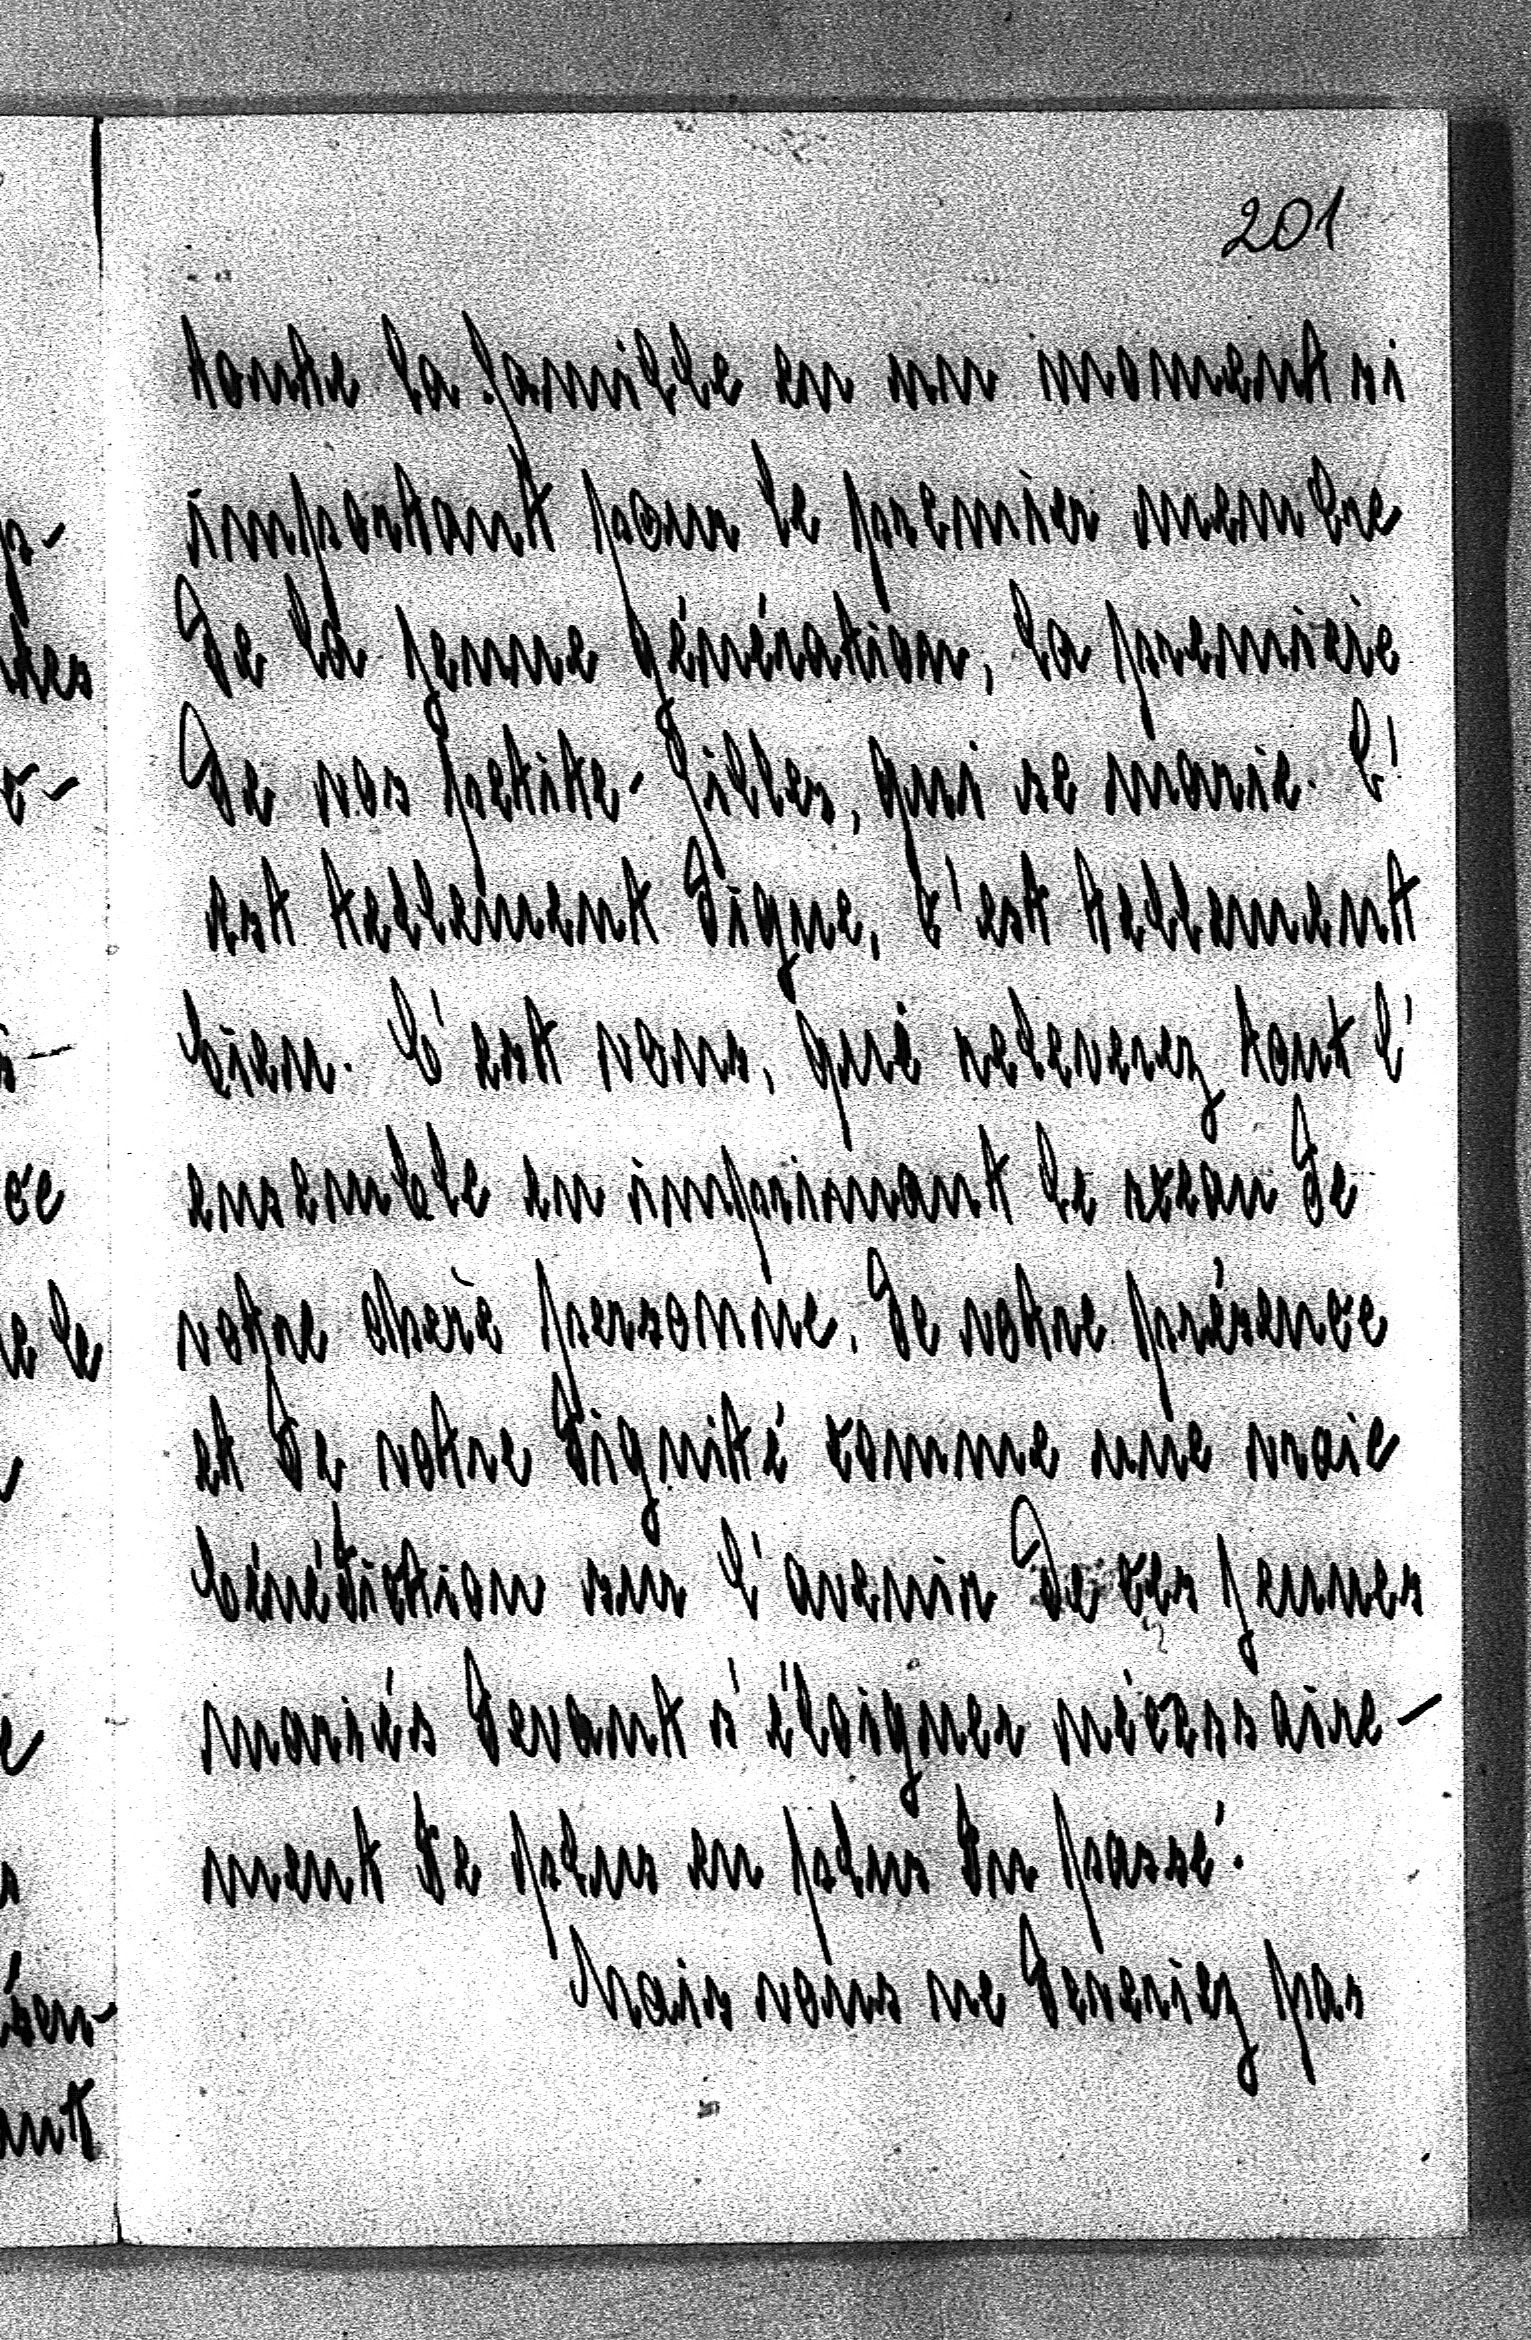 201
toute la famille en un moment si
important pour le premier membre
de la jeune génération, la première
de vos petite-filles, qui se marie. C'
est tellement digne, c'est tellement
bien. C'est vous, qui relevez tout l'
ensemble en imprimant le sceau de
votre chère personne, de votre présence
et de votre dignité comme une vraie
bénédiction sur l'avenir de ces jeunes
mariés devant s'éloigner nécessaire-
ment de plus en plus du passé.
Mais vous ne devriez pas